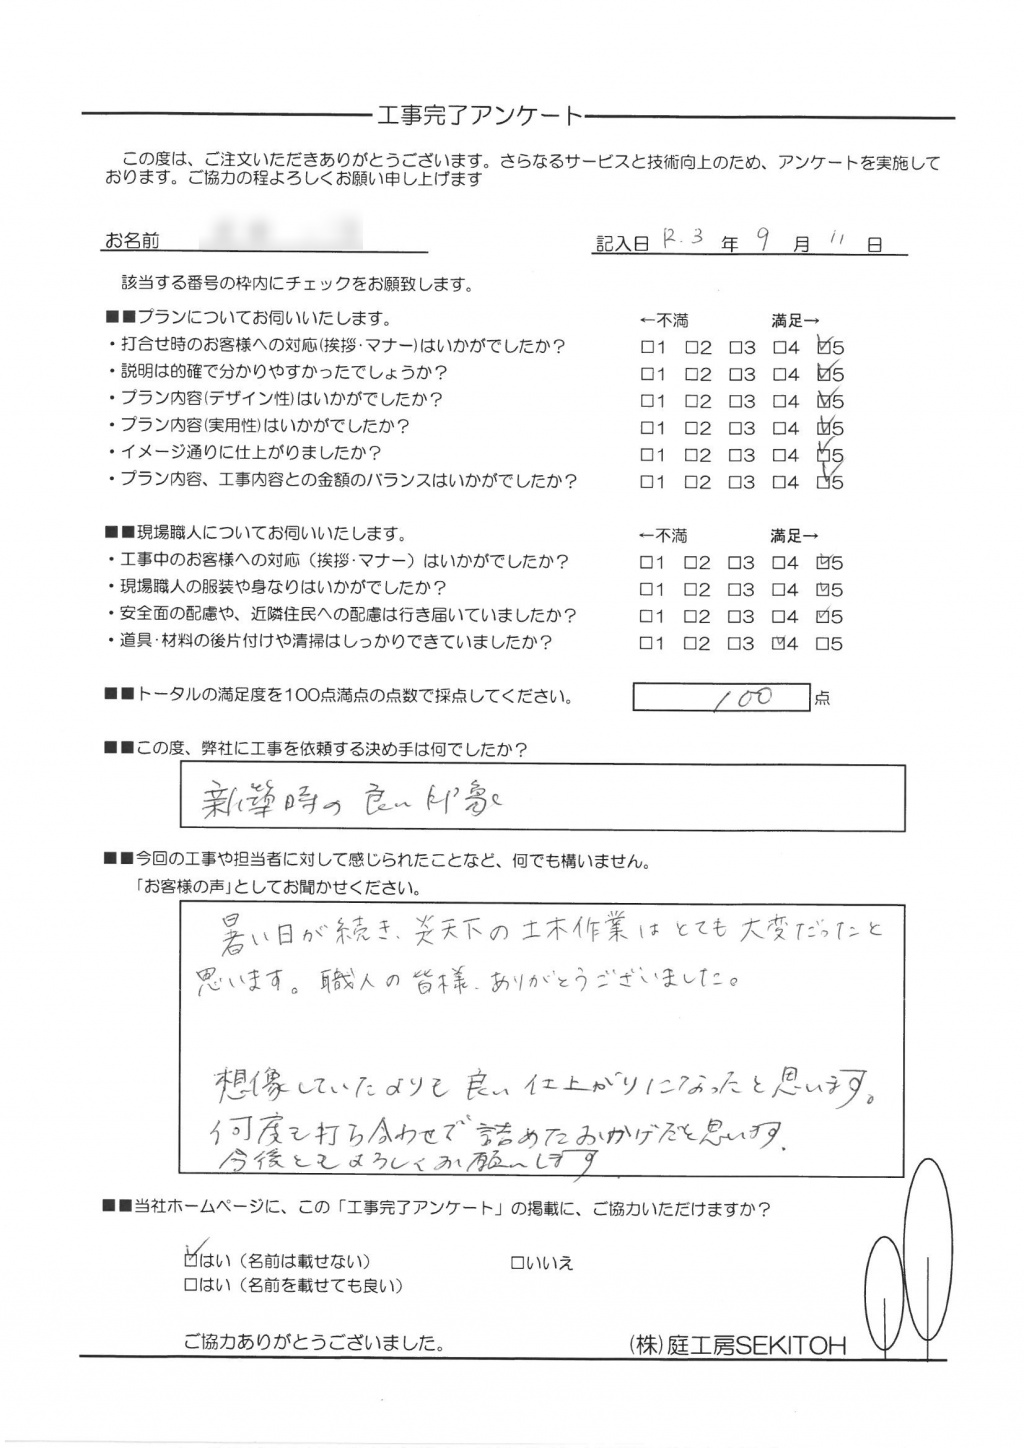 工事完了アンケート
この度は、ご注文いただきありがとうございます。さらなるサービスと技術向上のため、アンケートを実施して
おります。ご協力の程よろしくお願い申し上げます
お名前
記入日 R.3 年 9 月 11 日
該当する番号の枠内にチェックをお願致します。
■■プランについてお伺いいたします。 ←不満 満足→
・打合せ時のお客様への対応(挨拶・マナー)はいかがでしたか? □1 □2 □3 □4 ☑5
・説明は的確で分かりやすかったでしょうか? □1 □2 □3 □4 ☑5
・プラン内容(デザイン性)はいかがでしたか? □1 □2 □3 □4 ☑5
・プラン内容(実用性)はいかがでしたか? □1 □2 □3 □4 ☑5
・イメージ通りに仕上がりましたか? □1 □2 □3 □4 ☑5
・プラン内容、工事内容との金額のバランスはいかがでしたか? □1 □2 □3 □4 ☑5
■■現場職人についてお伺いいたします。 ←不満 満足→
・工事中のお客様への対応（挨拶・マナー）はいかがでしたか? □1 □2 □3 □4 ☑5
・現場職人の服装や身なりはいかがでしたか? □1 □2 □3 □4 ☑5
・安全面の配慮や、近隣住民への配慮は行き届いていましたか? □1 □2 □3 □4 ☑5
・道具・材料の後片付けや清掃はしっかりできていましたか? □1 □2 □3 ☑4 □5
■■トータルの満足度を100点満点の点数で採点してください。 100 点
■■この度、弊社に工事を依頼する決め手は何でしたか?
新築時の良い印象
■■今回の工事や担当者に対して感じられたことなど、何でも構いません。
「お客様の声」としてお聞かせください。
暑い日が続き、炎天下の土木作業はとても大変だったと
思います。職人の皆様、ありがとうございました。
想像していたよりも良い仕上がりになったと思います。
何度も打ち合わせで詰めたおかげだと思います.
今後ともよろしくお願いします
■■当社ホームページに、この「工事完了アンケート」の掲載に、ご協力いただけますか?
☑はい（名前は載せない） □いいえ
□はい（名前を載せても良い）
ご協力ありがとうございました。 (株)庭工房SEKITOH